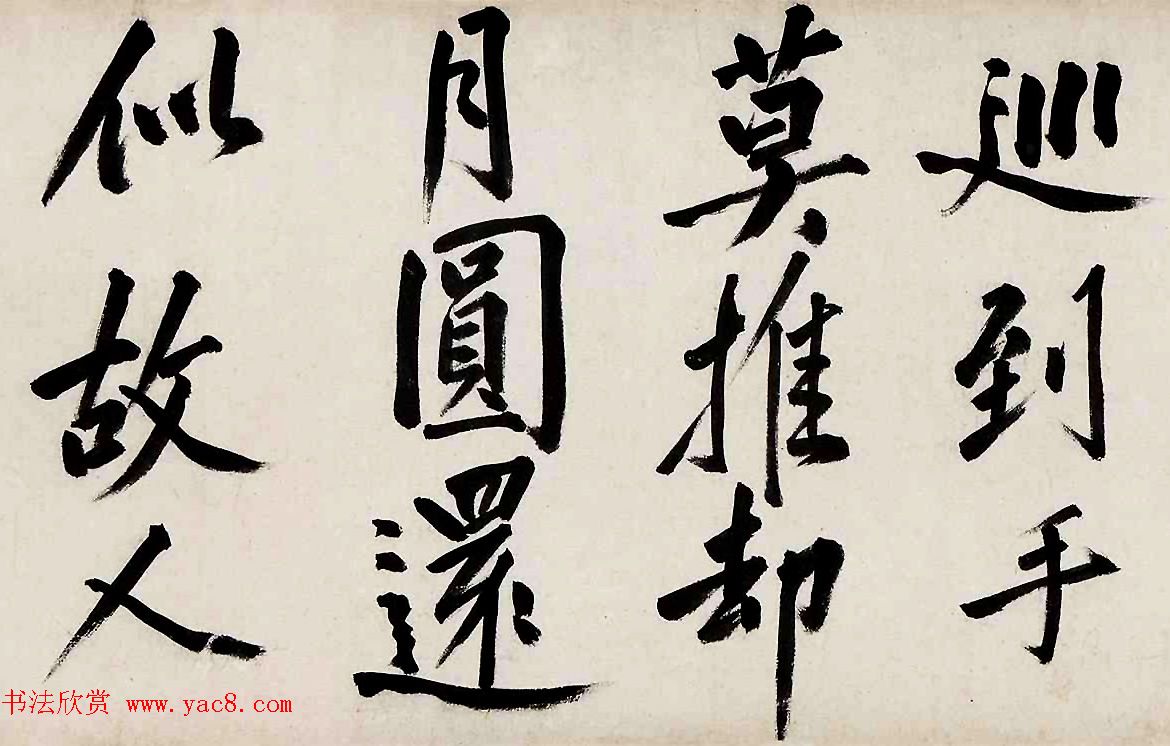 巡到手
莫推却
月圓還
似故人
书法欣赏 www.yac8.com